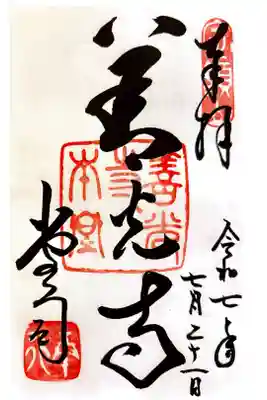 奉拝
令和七年
七月二十一日
善光寺
善光
寺
本堂